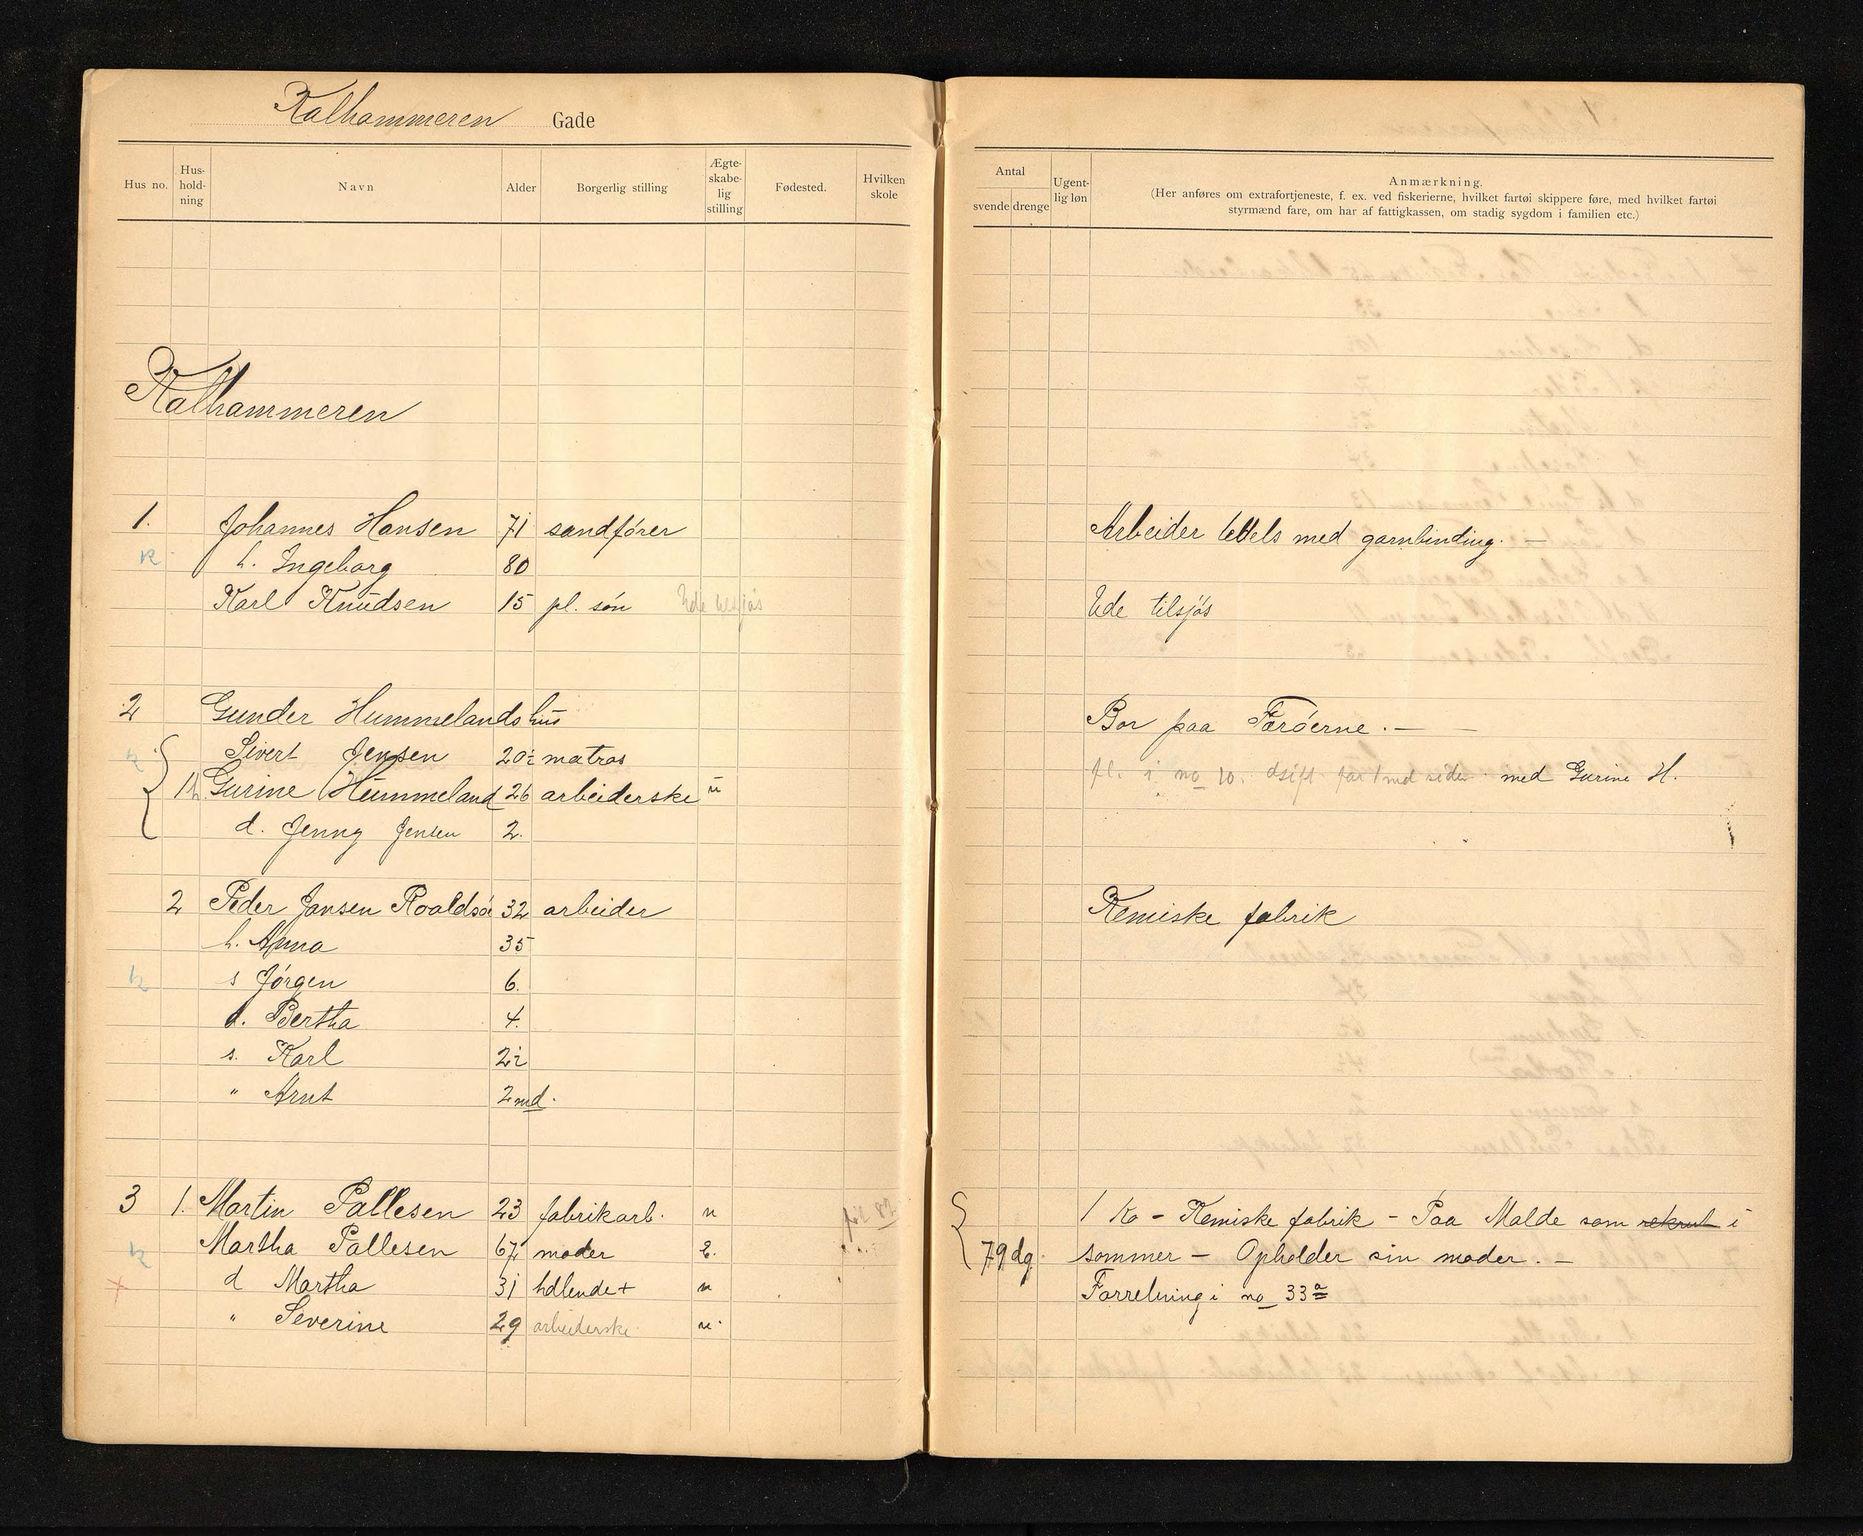 Kalhammeren Gade
Hus no. Hus-hold-ning Navn Alder Borgerlig stilling Ægte-skabe-lig stilling Fødested. Hvilken skole
Antal svende drenge Ugent-lig løn Anmærkning.
(Her anføres om extrafortjeneste, f. ex. ved fiskerierne, hvilket fartøi skippere føre, med hvilket fartøi
styrmænd fare, om har af fattigkassen, om stadig sygdom i familien etc.)
Kalhammeren
1. Johannes Hansen 71 sandfører Arbeider med garnbinding. —
h. Ingeborg 80
Karl Knudsen 15 pl. søn Ude tilsjös Ude tilsjös
2 Gunder Hummelands hus Bor paa Færöerne. —
Sivert Jensen 20 matros fl. i no 10. med Gurine H.
1 Gurine Hummeland 26 arbeiderske u
d. Jenny Jensen 2.
2 Peder Jansen Roaldsö 32 arbeider Kemiske fabrik
h. Anna 35
s Jörgen 6.
d. Bertha 4.
s. Karl 2½
" Arnt 2 md.
3 1. Martin Pallesen 23 fabrikarb. u 1 Ko - Kemiske fabrik - Paa Malde som rekrut i
Martha Pallesen 67 moder E. 79 dg. sommer — Opholder sin moder. —
d Martha 31 hdlende + u Forretning i no 33a
" Severine 29 arbeiderske u.